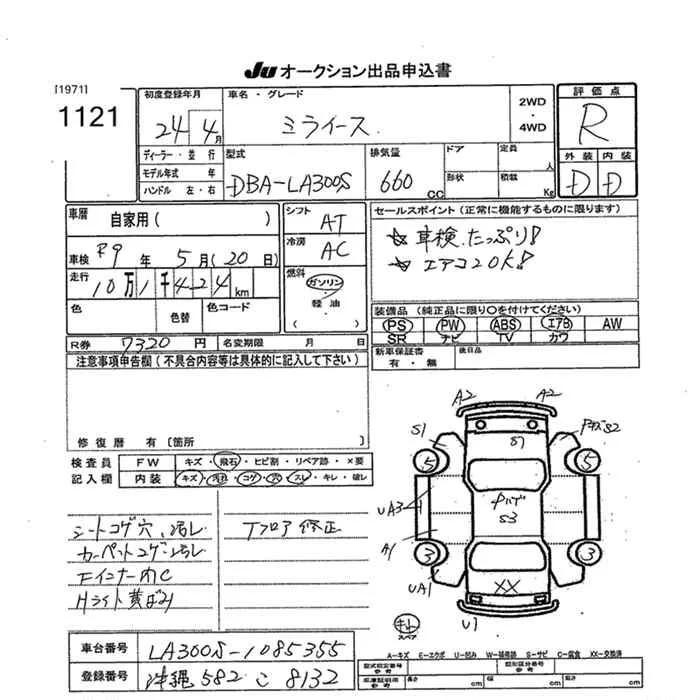 JU オークション出品申込書
[1971]
1121
初度登録年月
24年4月
車名・グレード
ミライース
2WD
・
4WD
評価点
R
ディーラー・並行
モデル年式 年
ハンドル 左・右
型式
DBA-LA300S
排気量
660 CC
ドア
形状
定員 人
積載 Kg
外装 内装
D D
車暦
自家用( )
シフト
AT
冷房
AC
車検 R9年 5月(20日)
走行 10万1千424km
燃料
ガソリン
・
軽油
・
色
色替
色コード
セールスポイント(正常に機能するものに限ります)
☆車検たっぷり!
☆エアコンOK!
装備品(純正品に限り○を付けてください)
PS PW ABS エアB AW
SR ナビ TV カワ
R券 7320円 名変期限 月 日
新車保証書
有・無
後日品
注意事項申告欄(不具合内容等は具体的に記入して下さい)
修復歴 有〔箇所 〕
検査員
記入欄
FW キズ・飛石・ヒビ割・リペア跡・×要
内装 キズ・汚れ・コゲ・穴・スレ・キレ・破レ
シートコゲ穴、汚レ
カーペットコゲ・汚レ
Fインナー内C
Hライト黄ばみ
Tフロア修正
A2 A2
S1 S2
5 5
UA3
S3
A1
3 3
UA1
XX
U1
スペア
A-キズ E-エクボ U-凹み W-補修跡 S-サビ C-腐食 XX-交換済
車台番号 LA300S-1085355
登録番号 沖縄 582 こ 8132
型式指定番号
参考
類別区分番号
参考
長さ cm 幅 cm 高さ cm